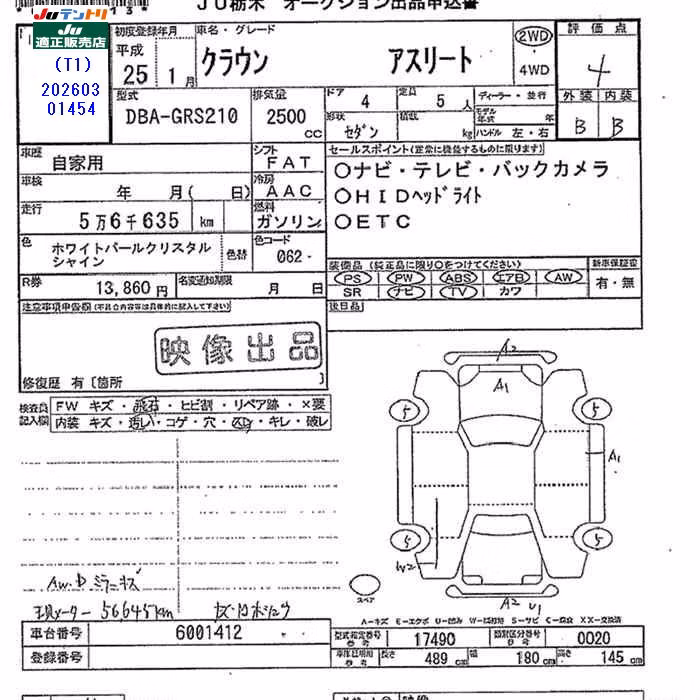 JU栃木 オークション出品申込書
Juテントリ
JU
適正販売店
(T1)
202603
01454
初度登録年月
平成
25 1月
車名・グレード
クラウン アスリート
2WD
4WD
評価点
4
外装 内装
B B
型式
DBA-GRS210
排気量
2500
cc
ドア 4
定員 5人
ディーラー・並行
形状 セダン
積載 kg
モデル年式 年
ハンドル 左・右
車歴 自家用
シフト FAT
セールスポイント(正常に機能するものに限ります)
○ナビ・テレビ・バックカメラ
○HIDヘッドライト
○ETC
車検 年 月( 日)
冷房 AAC
走行 5万6千635 km
燃料 ガソリン
色 ホワイトパールクリスタル
シャイン
色替
色コード
062-
装備品(純正品に限り○をつけてください)
PS PW ABS エアB AW
SR ナビ TV カワ
新車保証書
有・無
R券 13,860円
名変通知期限 月 日
後日品
注意事項申告欄(不具合内容等は具体的に記入して下さい)
映像出品
修復歴 有〔箇所 〕
検査員
記入欄
FW キズ・飛石・ヒビ割・リペア跡・×要
内装 キズ・汚れ・コゲ・穴・・キレ・破レ
A2
A1
5 5
A1
W2
5 5
A2 U1
スペア
AW.D ミラーキズ
現メーター 56645km
A-キズ E-エクボ U-凹み W-補修跡 S-サビ C-腐食 XX-交換済
車台番号 6001412
登録番号
型式指定番号 17490
類別区分番号 0020
長さ 489cm 幅 180cm 高さ 145cm